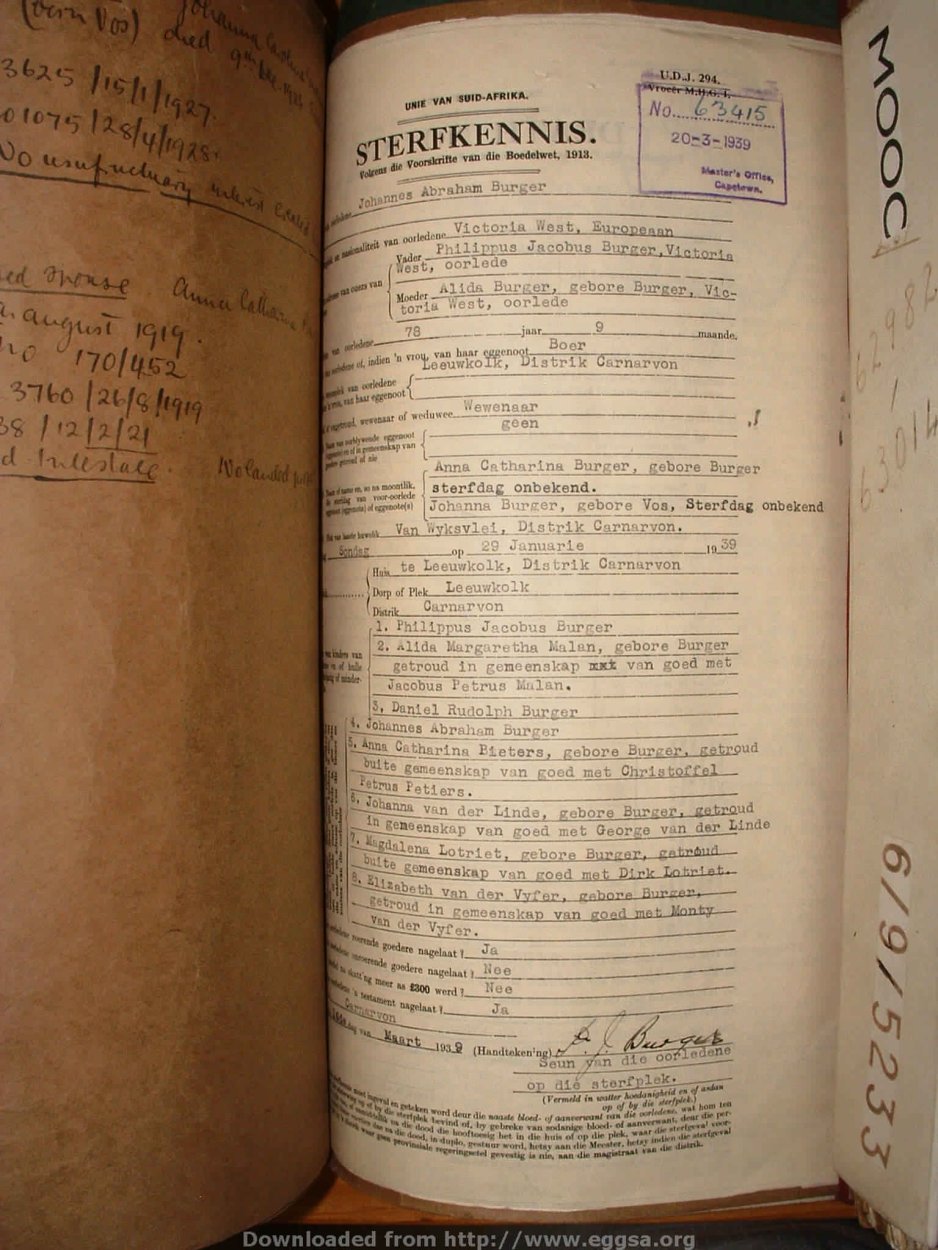 (born Vos) died 9th Dec. 1925
3625/15/1/1927.
01075/28/4/1928
No usufructuary interest created
Spouse Anna Catharina
August 1919.
no 170/452
3760/26/8/1919
38/12/2/21
Intestate. No landed
UNIE VAN SUID-AFRIKA.
STERFKENNIS.
Volgens die Voorskrifte van die Boedelwet, 1913.
U.D.J. 294.
Vroeër M.H.G. I.
No. 63415
20-3-1939
Master's Office,
Capetown.
Johannes Abraham Burger
en nasionaliteit van oorledene Victoria West, Europeaan
Vader Philippus Jacobus Burger, Victoria
West, oorlede
van ouers van
Moeder Alida Burger, gebore Burger, Vic-
toria West, oorlede
van oorledene 78 jaar 9 maande.
oorledene of, indien 'n vrou, van haar eggenoot Boer
Leeuwkolk, Distrik Carnarvon
van oorledene
van haar eggenoot
ongetroud, wewenaar of weduwee Wewenaar
geen
Naam van oorblywende eggenoot
of in gemeenskap van
goedere getroud of nie
Anna Catharina Burger, gebore Burger
sterfdag onbekend.
Naam of name en, so na moontlik,
sterfdag van voor-oorlede
eggenoot (eggenote) of eggenote(s)
Johanna Burger, gebore Vos, Sterfdag onbekend
Van Wyksvlei, Distrik Carnarvon.
Sondag op 29 Januarie 1939
Huis te Leeuwkolk, Distrik Carnarvon
Dorp of Plek Leeuwkolk
Distrik Carnarvon
1. Philippus Jacobus Burger
2. Alida Margaretha Malan, gebore Burger
getroud in gemeenskap van goed met
Jacobus Petrus Malan.
3. Daniel Rudolph Burger
4. Johannes Abraham Burger
5. Anna Catharina Pieters, gebore Burger, getroud
buite gemeenskap van goed met Christoffel
Petrus Petiers.
6. Johanna van der Linde, gebore Burger, getroud
in gemeenskap van goed met George van der Linde
7. Magdalena Lotriet, gebore Burger, getroud
buite gemeenskap van goed met Dirk Lotriet.
8. Elizabeth van der Vyfer, gebore Burger,
getroud in gemeenskap van goed met Monty
van der Vyfer.
roerende goedere nagelaat? Ja
onroerende goedere nagelaat? Nee
meer as £300 werd? Nee
'n testament nagelaat? Ja
Carnarvon
dag van Maart 1939 (Handtekening) P. J. Burger
Seun van die oorledene
op die sterfplek.
(Vermeld in watter hoedanigheid en of andan
op of by die sterfplek.)
ingevul en geteken word deur die naaste bloed- of aanverwant van die oorledene, wat hom ten
of by die sterfplek bevind of, by gebreke van sodanige bloed- of aanverwant, deur die per-
onmiddellik na die dood die hooftoesig het in die huis of op die plek, waar die sterfgeval voor-
na die dood, in duplo, gestuur word, hetsy aan die Meester, hetsy indien die sterfgeval
waar geen provinsiale regeringsetel gevestig is nie, aan die magistraat van die distrik.
MOOC
62982
63014
6/9/5233
Downloaded from http://www.eggsa.org